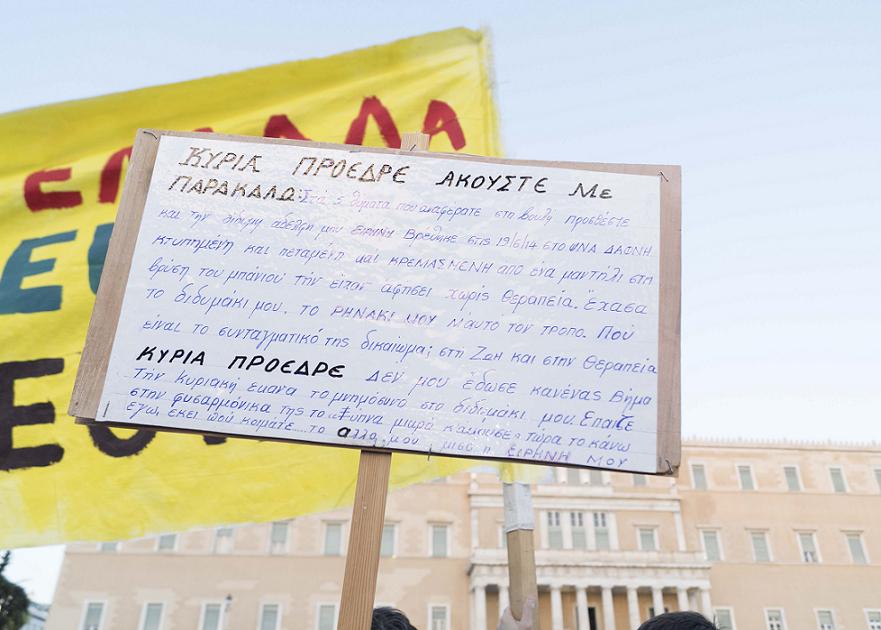 ΚΥΡΙΑ ΠΡΟΕΔΡΕ ΑΚΟΥΣΤΕ Με
ΠΑΡΑΚΑΛΩ: Στα 5 θύματα που αναφέρατε στη βουλή προσθέστε
και την δίδυμη αδελφή μου ΕΙΡΗΝΗ Βρέθηκε στις 19/6/14 στο ΨΝΑ ΔΑΦΝΗ
κτυπημένη και πεταμένη και ΚΡΕΜΑΣΜΕΝΗ από ένα μαντήλι στη
βρύση του μπάνιου την είχαν αφήσει χωρίς θεραπεία. Έχασα
το διδυμάκι μου, το ΡΗΝΑΚΙ ΜΟΥ Μ'αυτό τον τροπο. Πού
είναι το συνταγματικό της δικαίωμα; στη Ζωή και στην Θεραπεία
ΚΥΡΙΑ ΠΡΟΕΔΡΕ Δεν μου έδωσε κανένας Βήμα
Την Κυριακή εκανα το μνημόσυνο στο διδυμάκι μου. Επαιζε
στην φυσαρμόνικα της το "Ξύπνα μικρό και άκουσε" τώρα το κάνω
εγω, εκει πού κοιμάτε.... το αλλο μου μισό η ΕΙΡΗΝΗ ΜΟΥ